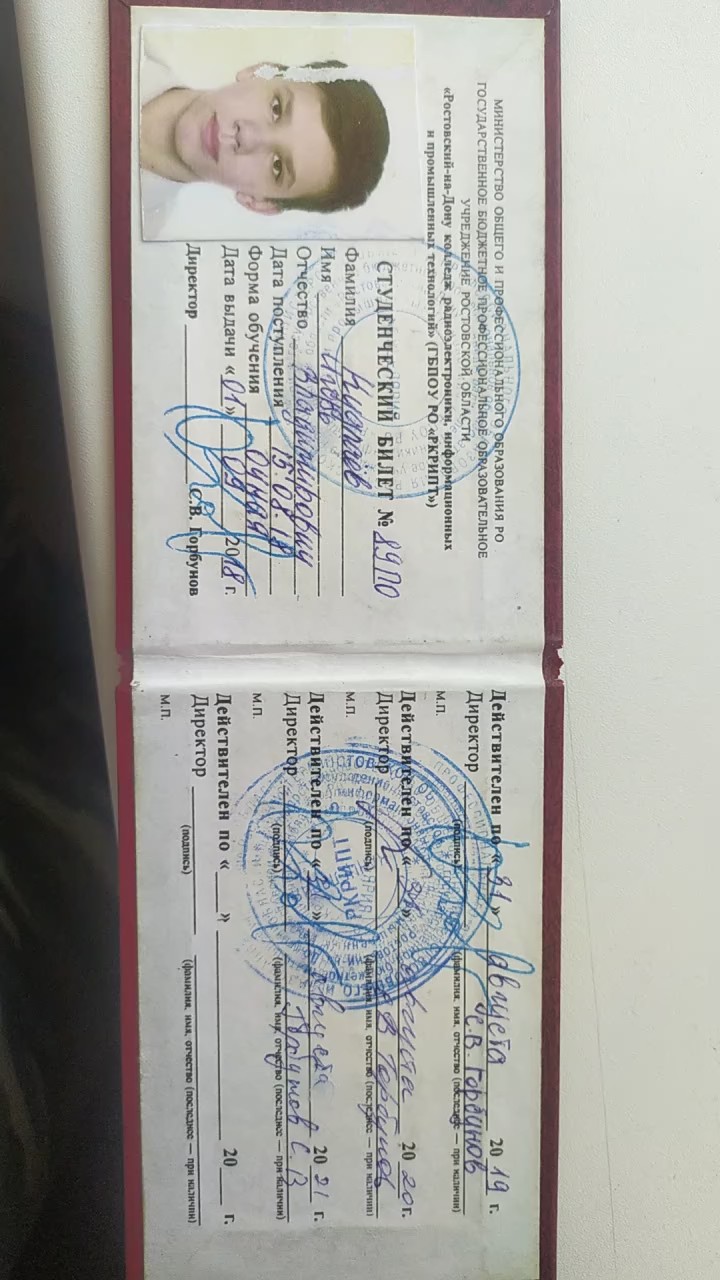 МИНИСТЕРСТВО ОБЩЕГО И ПРОФЕССИОНАЛЬНОГО ОБРАЗОВАНИЯ РО
ГОСУДАРСТВЕННОЕ БЮДЖЕТНОЕ ПРОФЕССИОНАЛЬНОЕ ОБРАЗОВАТЕЛЬНОЕ
УЧРЕЖДЕНИЕ РОСТОВСКОЙ ОБЛАСТИ
«Ростовский-на-Дону колледж радиоэлектроники, информационных
и промышленных технологий» (ГБПОУ РО «РКРИПТ»)
СТУДЕНЧЕСКИЙ БИЛЕТ № 89ПО
Фамилия
Имя
Отчество Владимирович
Дата поступления 15.08.18
Форма обучения очная
Дата выдачи «01» 09 2018 г.
Директор С.В. Горбунов
Действителен по «31» августа 2019 г.
Директор С.В. Горбунов
(подпись) (фамилия, имя, отчество (последнее — при наличии)
м.п.
Действителен по «31» августа 2020 г.
Директор С.В. Горбунов
(подпись) (фамилия, имя, отчество (последнее — при наличии)
м.п.
Действителен по «31» августа 2021 г.
Директор Горбунов С.В
(подпись) (фамилия, имя, отчество (последнее — при наличии)
м.п.
Действителен по « » 20 г.
Директор
(подпись) (фамилия, имя, отчество (последнее — при наличии)
м.п.
РКРИПТ